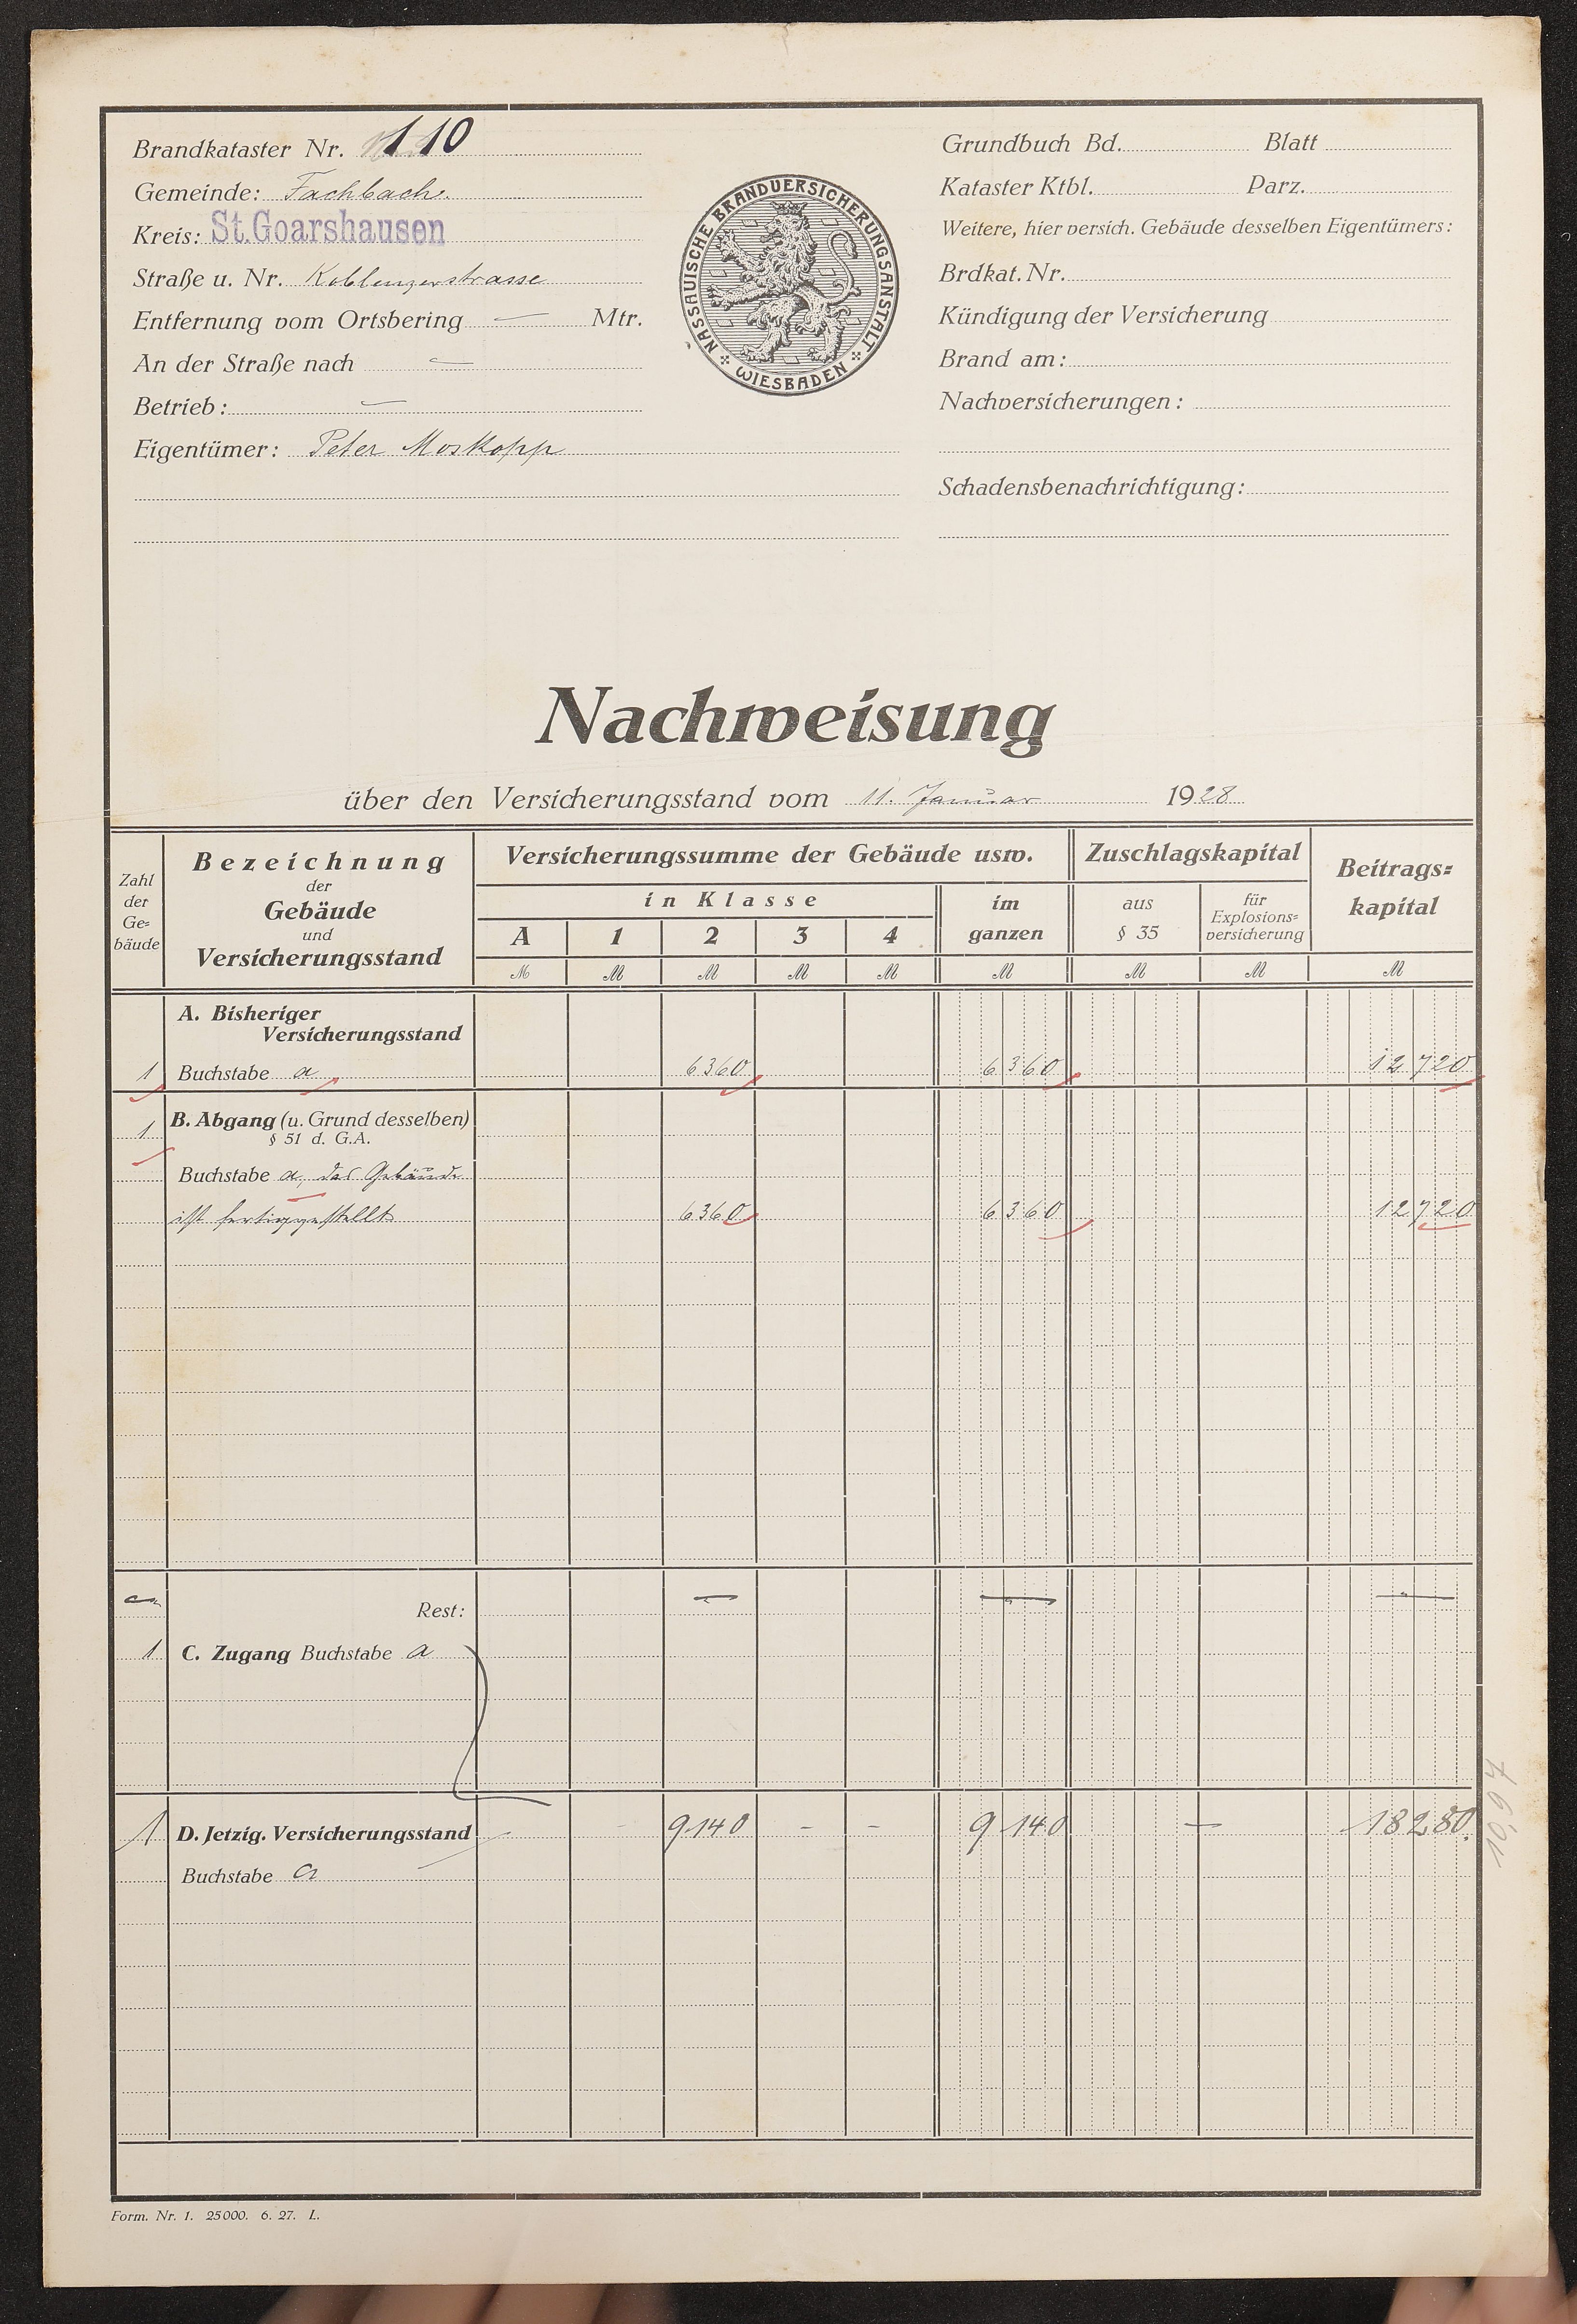 Brandkataster Nr. 110
Gemeinde: Fachbach.
Kreis: St.Goarshausen
Straße u. Nr. Koblenzerstrasse
Entfernung vom Ortsbering — Mtr.
An der Straße nach —
Betrieb: —
Eigentümer: Peter Moskopp
NASSAUISCHE BRANDVERSICHERUNGSANSTALT
WIESBADEN
Grundbuch Bd. Blatt
Kataster Ktbl. Parz.
Weitere, hier versich. Gebäude desselben Eigentümers:
Brdkat. Nr.
Kündigung der Versicherung
Brand am:
Nachversicherungen:
Schadensbenachrichtigung:
Nachweisung
über den Versicherungsstand vom 11. Januar 1928
Zahl der Ge=bäude
Bezeichnung der Gebäude und Versicherungsstand
Versicherungssumme der Gebäude usw.
in Klasse
A 1 2 3 4
im ganzen
Zuschlagskapital
aus § 35
für Explosions=versicherung
Beitrags=kapital
M M M M M M M M M
A. Bisheriger
Versicherungsstand
1 Buchstabe a 6360 6360 12720
1 B. Abgang (u. Grund desselben)
§ 51 d. G.A.
Buchstabe a, das Gebäude
ist fertiggestellt 6360 6360 12720
— Rest: — — —
1 C. Zugang Buchstabe a
1 D. Jetzig. Versicherungsstand - - 9140 - - 9140 — 18280
Buchstabe a
10,97
Form. Nr. 1. 25000. 6. 27. L.